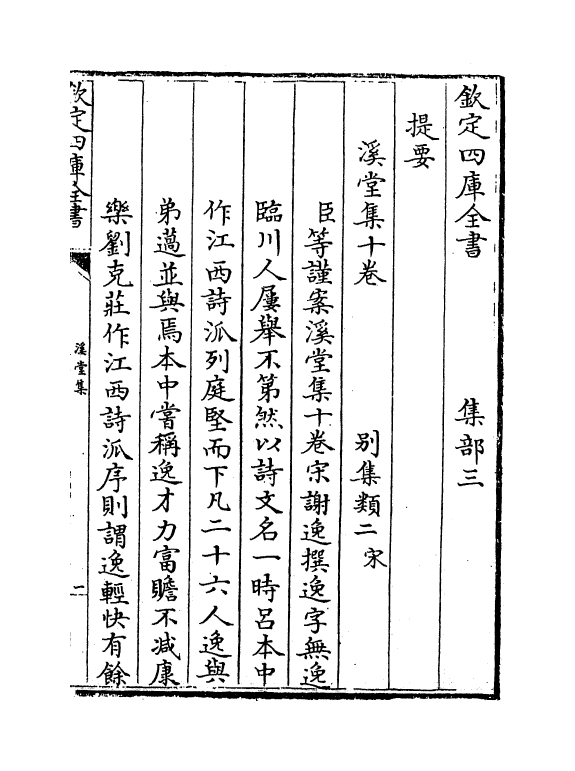 欽定四庫全書　　　集部三
提要
溪堂集十卷　　　别集類二宋
臣等謹案溪堂集十卷宋謝逸撰逸字無逸
臨川人屢舉不第然以詩文名一時呂本中
作江西詩派列庭堅而下凡二十六人逸與
弟薖並與焉本中嘗稱逸才力富贍不减康
樂劉克莊作江西詩派序則謂逸輕快有餘
欽定四庫全書
溪堂集
一